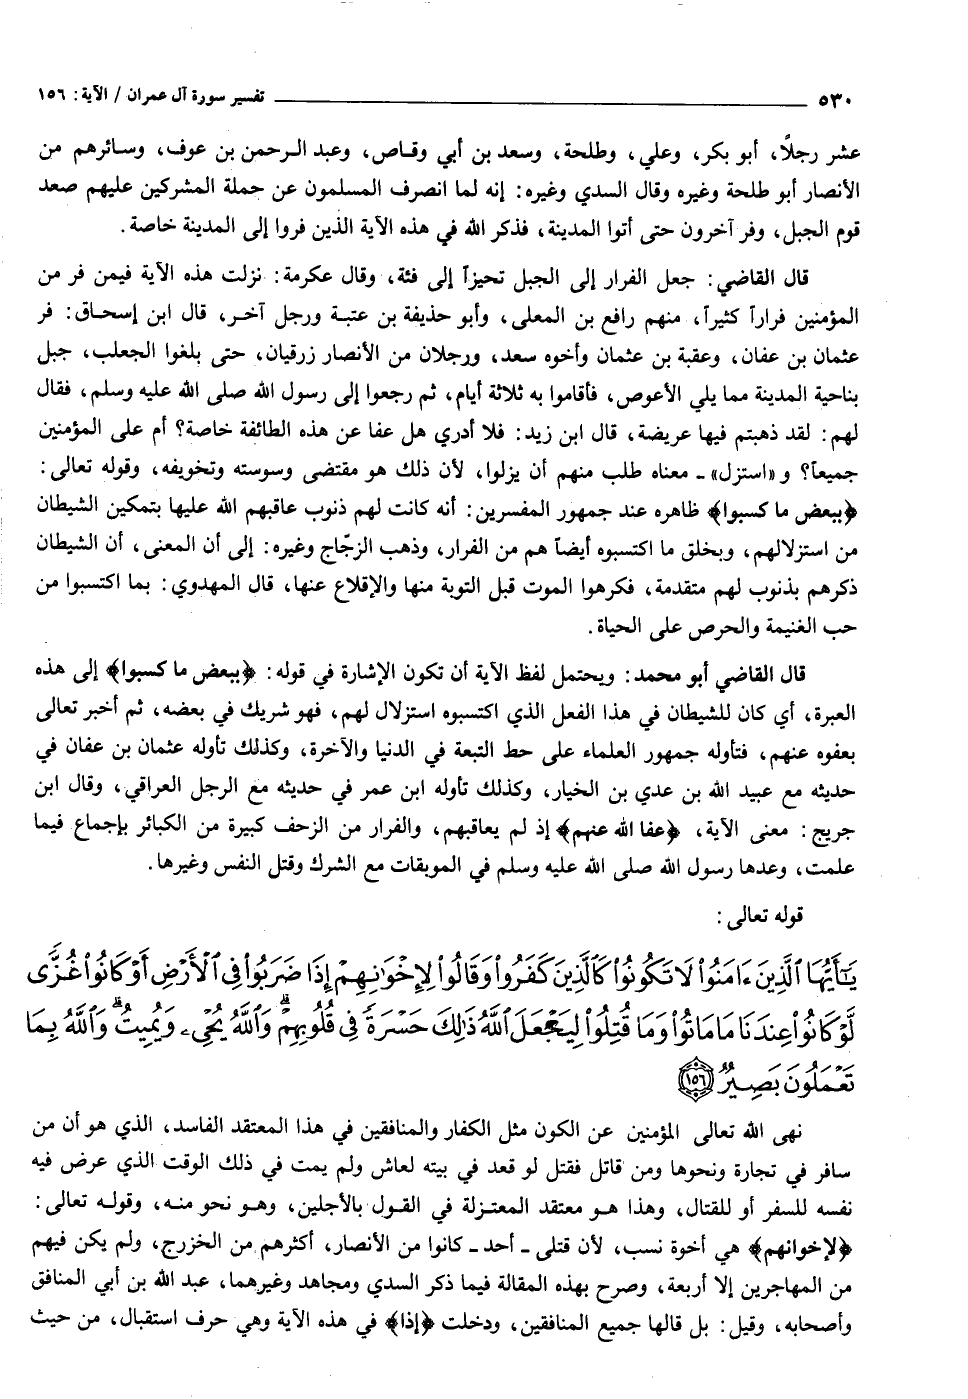 ٥٣٠ تفسير سورة آل عمران / الآية: ١٥٦
عشر رجلاً، أبو بكر، وعلي، وطلحة، وسعد بن أبي وقاص، وعبد الرحمن بن عوف، وسائرهم من
الأنصار أبو طلحة وغيره وقال السدي وغيره: إنه لما انصرف المسلمون عن حملة المشركين عليهم صعد
قوم الجبل، وفر آخرون حتى أتوا المدينة، فذكر الله في هذه الآية الذين فروا إلى المدينة خاصة.
قال القاضي: جعل الفرار إلى الجبل تحيزاً إلى فئة، وقال عكرمة: نزلت هذه الآية فيمن فر من
المؤمنين فراراً كثيراً، منهم رافع بن المعلى، وأبو حذيفة بن عتبة ورجل آخر، قال ابن إسحاق: فر
عثمان بن عفان، وعقبة بن عثمان وأخوه سعد، ورجلان من الأنصار زرقيان، حتى بلغوا الجعلب، جبل
بناحية المدينة مما يلي الأعوص، فأقاموا به ثلاثة أيام، ثم رجعوا إلى رسول الله صلى الله عليه وسلم، فقال
لهم: لقد ذهبتم فيها عريضة، قال ابن زيد: فلا أدري هل عفا عن هذه الطائفة خاصة؟ أم على المؤمنين
جميعاً؟ و «استزل» - معناه طلب منهم أن يزلوا، لأن ذلك هو مقتضى وسوسته وتخويفه، وقوله تعالى:
﴿ببعض ما كسبوا﴾ ظاهره عند جمهور المفسرين: أنه كانت لهم ذنوب عاقبهم الله عليها بتمكين الشيطان
من استزلالهم، وبخلق ما اكتسبوه أيضاً هم من الفرار، وذهب الزجّاج وغيره: إلى أن المعنى، أن الشيطان
ذكرهم بذنوب لهم متقدمة، فكرهوا الموت قبل التوبة منها والإقلاع عنها، قال المهدوي: بما اكتسبوا من
حب الغنيمة والحرص على الحياة.
قال القاضي أبو محمد: ويحتمل لفظ الآية أن تكون الإشارة في قوله: ﴿ببعض ما كسبوا﴾ إلى هذه
العبرة، أي كان للشيطان في هذا الفعل الذي اكتسبوه استزلال لهم، فهو شريك في بعضه، ثم أخبر تعالى
بعفوه عنهم، فتأوله جمهور العلماء على حط التبعة في الدنيا والآخرة، وكذلك تأوله عثمان بن عفان في
حديثه مع عبيد الله بن عدي بن الخيار، وكذلك تأوله ابن عمر في حديثه مع الرجل العراقي، وقال ابن
جريج: معنى الآية، ﴿عفا الله عنهم﴾ إذ لم يعاقبهم، والفرار من الزحف كبيرة من الكبائر بإجماع فيما
علمت، وعدها رسول الله صلى الله عليه وسلم في الموبقات مع الشرك وقتل النفس وغيرها.
قوله تعالى:
يَٰٓأَيُّهَا ٱلَّذِينَ ءَامَنُوا۟ لَا تَكُونُوا۟ كَٱلَّذِينَ كَفَرُوا۟ وَقَالُوا۟ لِإِخْوَٰنِهِمْ إِذَا ضَرَبُوا۟ فِى ٱلْأَرْضِ أَوْ كَانُوا۟ غُزًّى
لَّوْ كَانُوا۟ عِندَنَا مَا مَاتُوا۟ وَمَا قُتِلُوا۟ لِيَجْعَلَ ٱللَّهُ ذَٰلِكَ حَسْرَةً فِى قُلُوبِهِمْ ۗ وَٱللَّهُ يُحْىِۦ وَيُمِيتُ ۗ وَٱللَّهُ بِمَا
تَعْمَلُونَ بَصِيرٌ ﴿١٥٦﴾
نهى الله تعالى المؤمنين عن الكون مثل الكفار والمنافقين في هذا المعتقد الفاسد، الذي هو أن من
سافر في تجارة ونحوها ومن قاتل فقتل لو قعد في بيته لعاش ولم يمت في ذلك الوقت الذي عرض فيه
نفسه للسفر أو للقتال، وهذا هو معتقد المعتزلة في القول بالأجلين، وهو نحو منه، وقوله تعالى:
﴿لإخوانهم﴾ هي أخوة نسب، لأن قتلى - أحد - كانوا من الأنصار، أكثرهم من الخزرج، ولم يكن فيهم
من المهاجرين إلا أربعة، وصرح بهذه المقالة فيما ذكر السدي ومجاهد وغيرهما، عبد الله بن أبي المنافق
وأصحابه، وقيل: بل قالها جميع المنافقين، ودخلت ﴿إذا﴾ في هذه الآية وهي حرف استقبال، من حيث